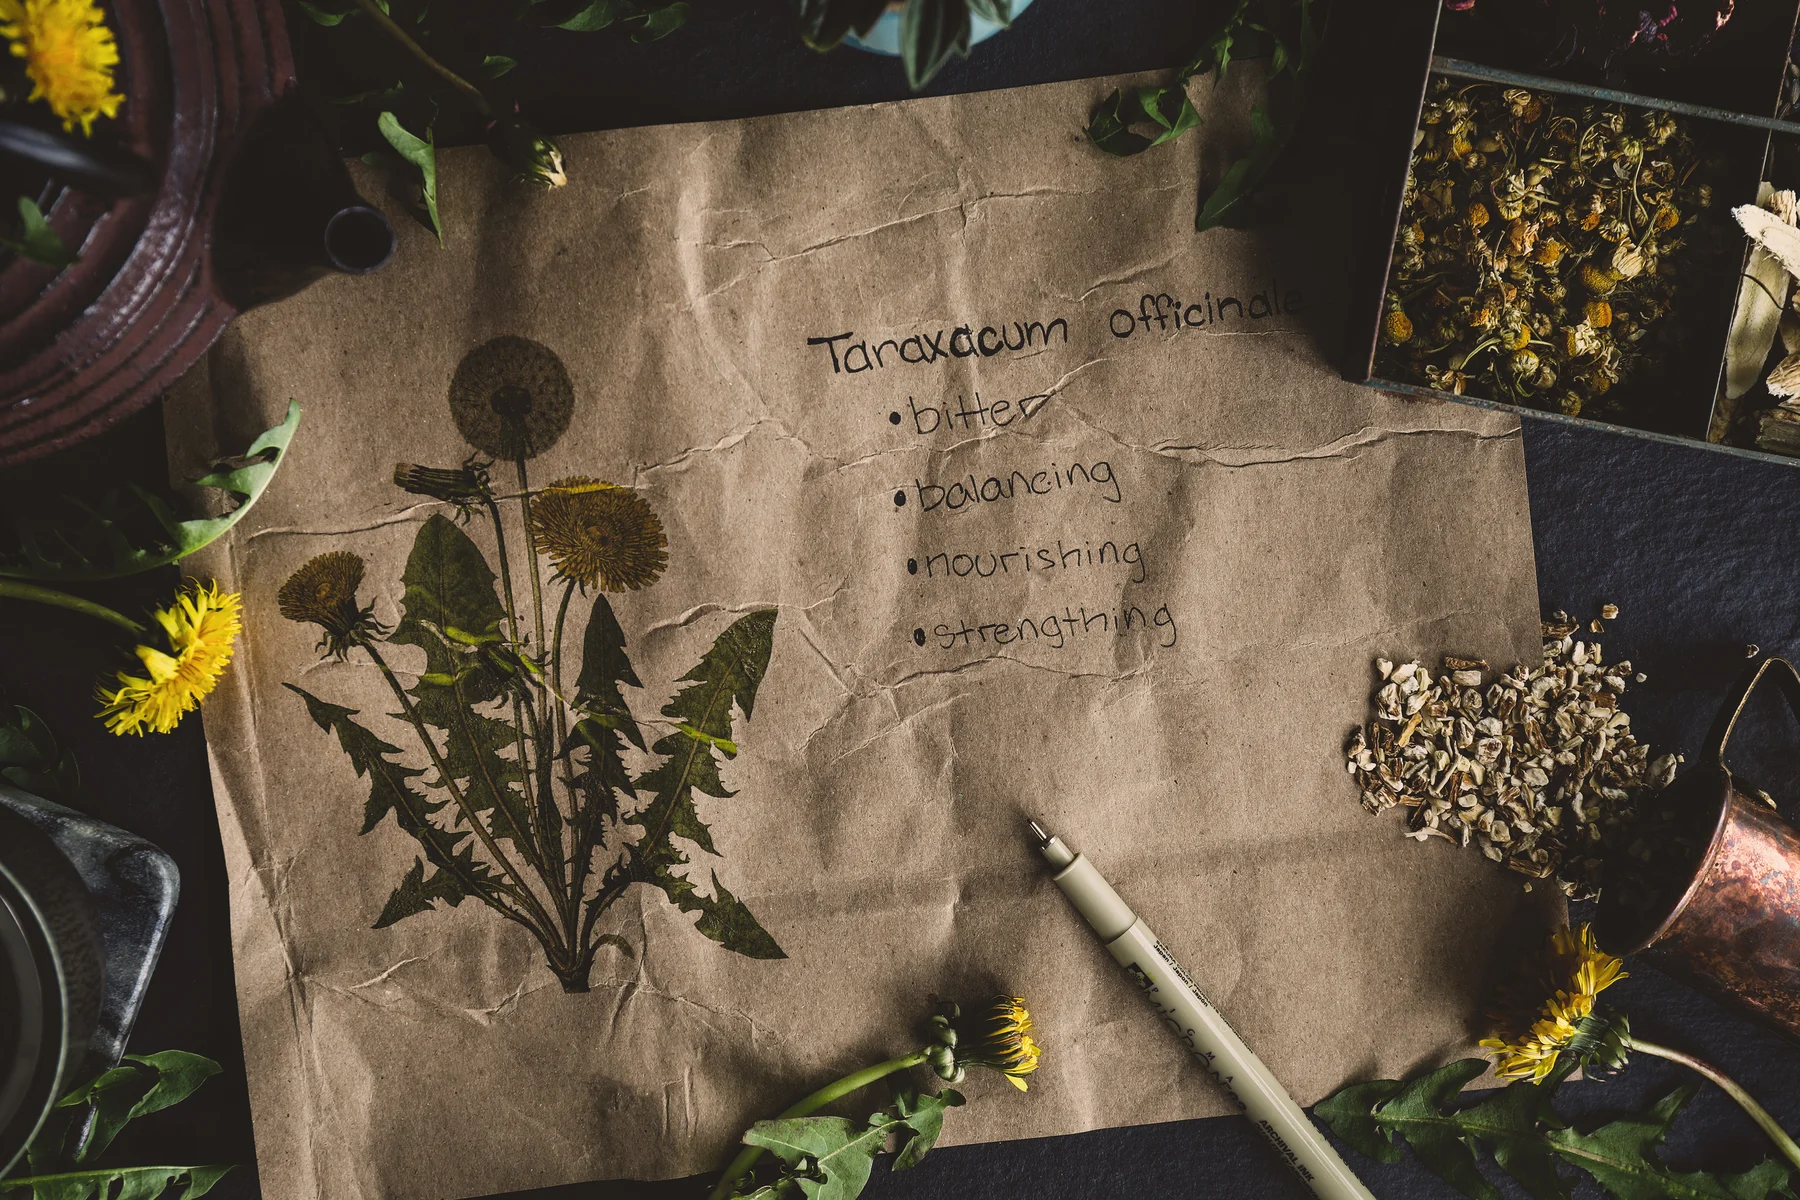 Taraxacum officinale
•bitter
•balancing
•nourishing
•strengthing
Japan / Japon / Japón
ARCHIVAL INK